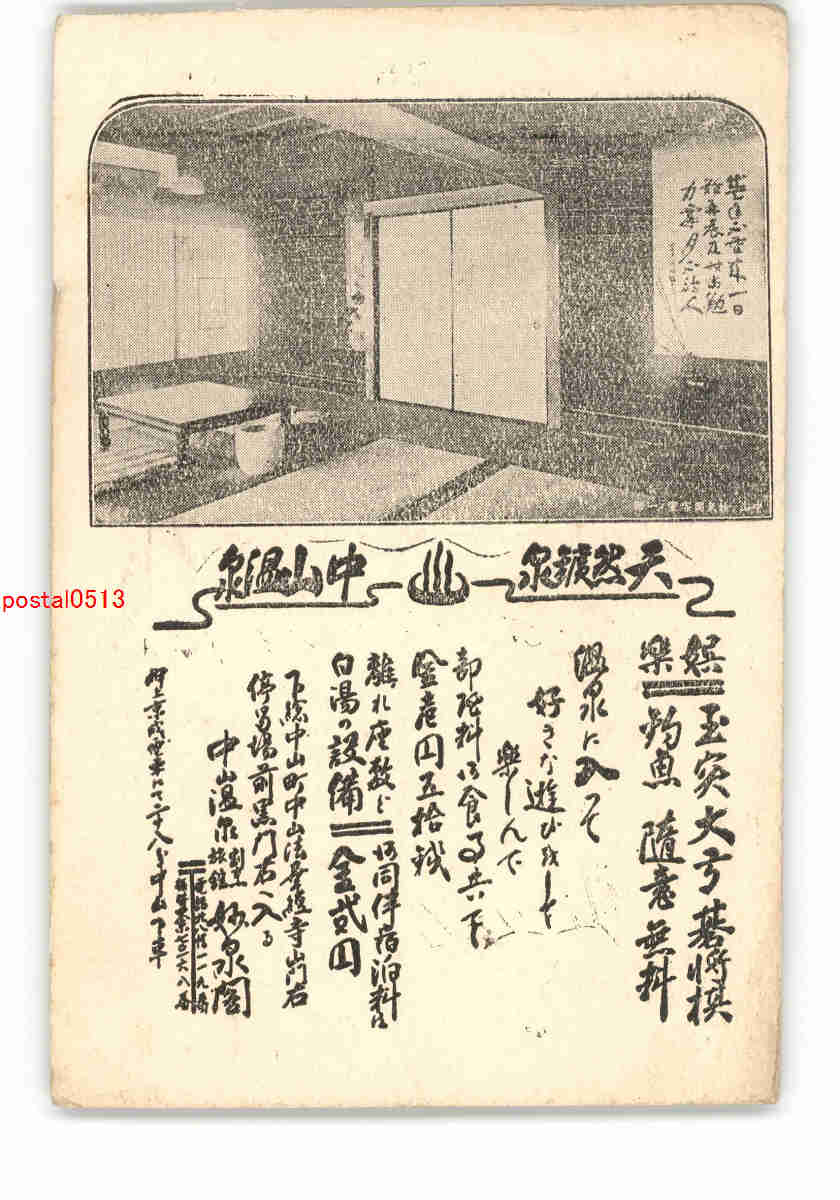 天然鑛泉
中山温泉
娯樂
玉突大弓碁将棋
釣魚 随意無料
温泉に入つて
好きな遊びをして
楽しんで
部屋料御食事共で
金壱円五拾銭
離れ座敷と
白湯の設備
御同伴宿泊料は
金貮円
下総中山町中山法華経寺山門右
停留場前黒門右へ入る
中山温泉
割烹
旅館
妙泉閣
押上京成電車にて二十八分中山下車
postal0513